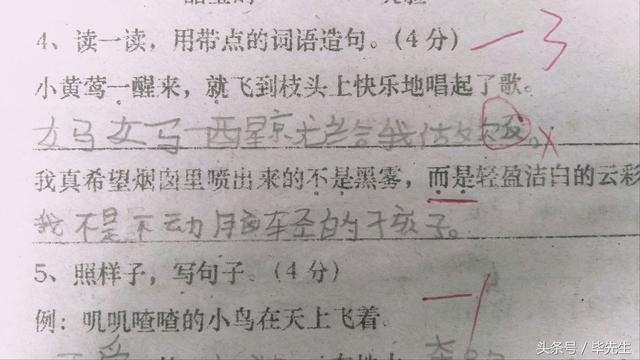 4、读一读，用带点的词语造句。(4分) 一3
小黄莺一醒来，就飞到枝头上快乐地唱起了歌。
妈妈一醒就给我做饭。×
我真希望烟囱里喷出来的不是黑雾，而是轻盈洁白的云彩
我不是不动的孩子。
5、照样子，写句子。(4分) 一1
例：叽叽喳喳的小鸟在天上飞着。
头条号／毕先生